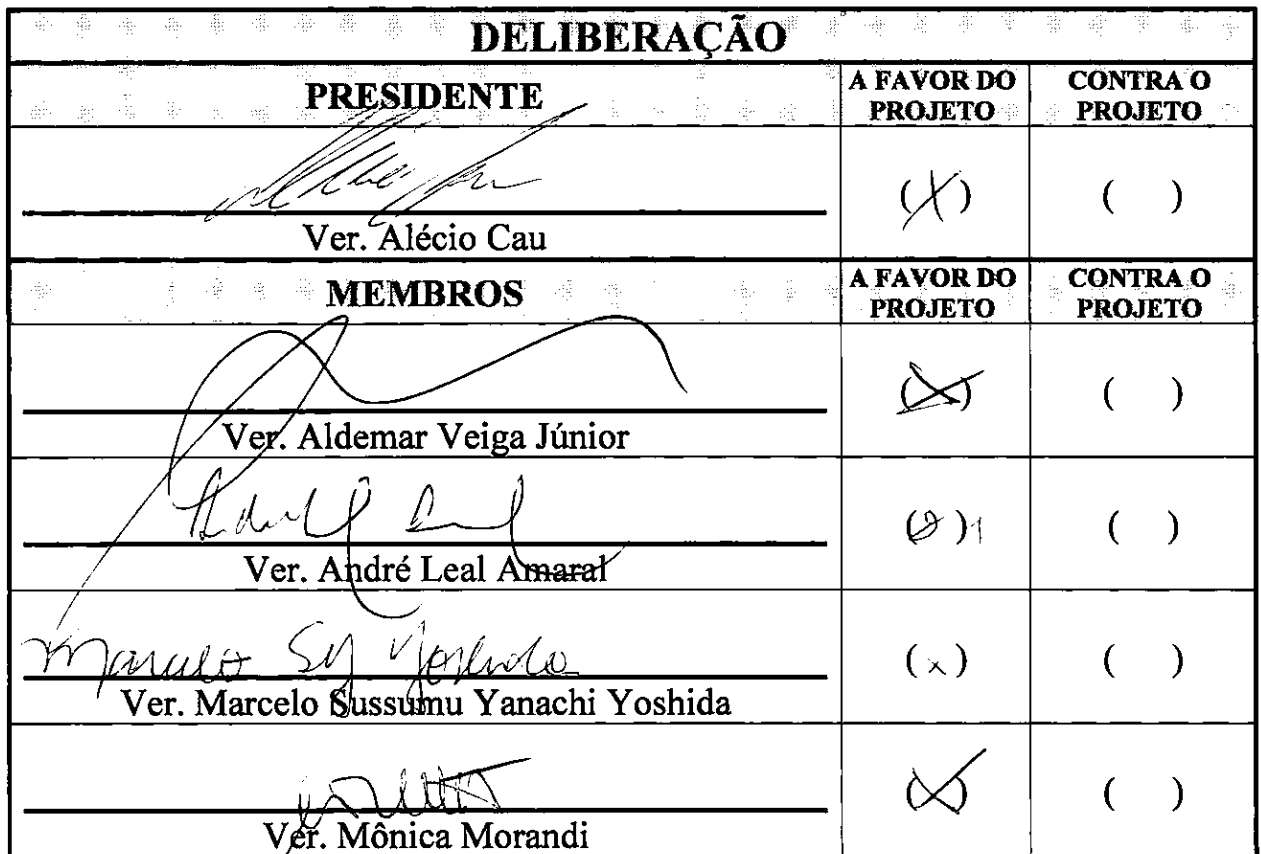 DELIBERAÇÃO
PRESIDENTE
A FAVOR DO PROJETO
CONTRA O PROJETO
(X)
( )
Ver. Alécio Cau
MEMBROS
A FAVOR DO PROJETO
CONTRA O PROJETO
(X)
( )
Ver. Aldemar Veiga Júnior
( )
Ver. André Leal Amaral
Marcelo SY Yoshida
(x)
( )
Ver. Marcelo Sussumu Yanachi Yoshida
(X)
( )
Ver. Mônica Morandi